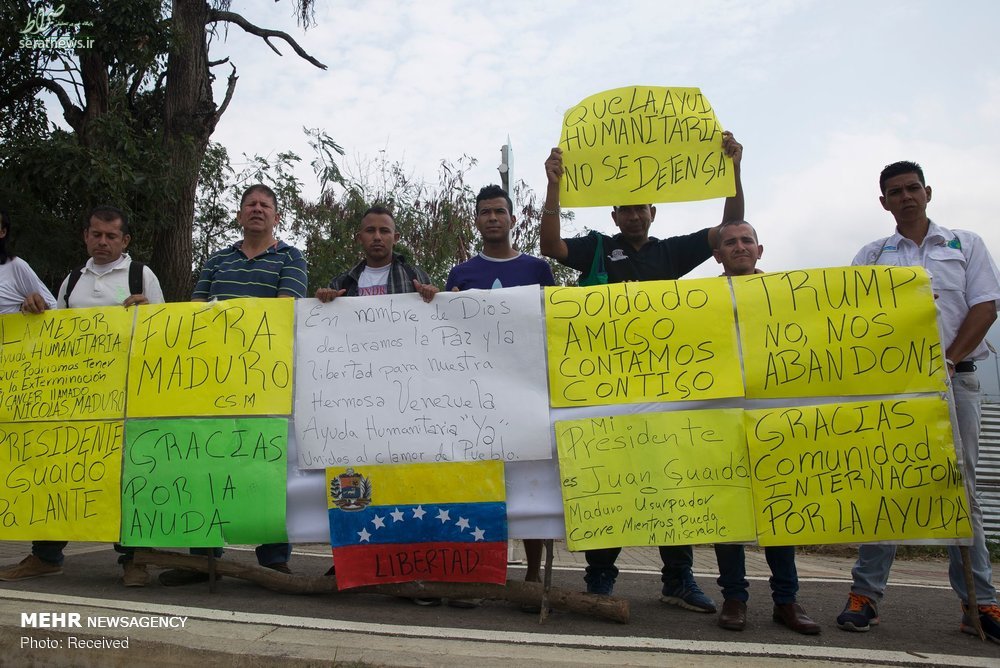 صراط
seratnews.ir
QUE LA AYUD
HUMANITARIA
NO SE DETENGA
LA MEJOR
HUMANITARIA
que Podriamos Tener
la Exterminación
CANCER LLAMADO
NICOLÁS MADURO
FUERA
MADURO
CSM
En nombre de Dios
declaramos la Paz y la
libertad para nuestra
Hermosa Venezuela
Ayuda Humanitaria "Ya"
Unidos al clamor del Pueblo.
SOLDADO
AMIGO
CONTAMOS
CONTIGO
TRUMP
NO, NOS
ABANDONE
PRESIDENTE
GUAIDO
LANTE
GRACIAS
POR LA
AYUDA
LIBERTAD
Mi
Presidente
es Juan Guaidó
Maduro Usurpador
Corre Mientras Pueda
M. MISERABLE
GRACIAS
Comunidad
INTERNACION
POR LA AYUDA
MEHR NEWSAGENCY
Photo: Received